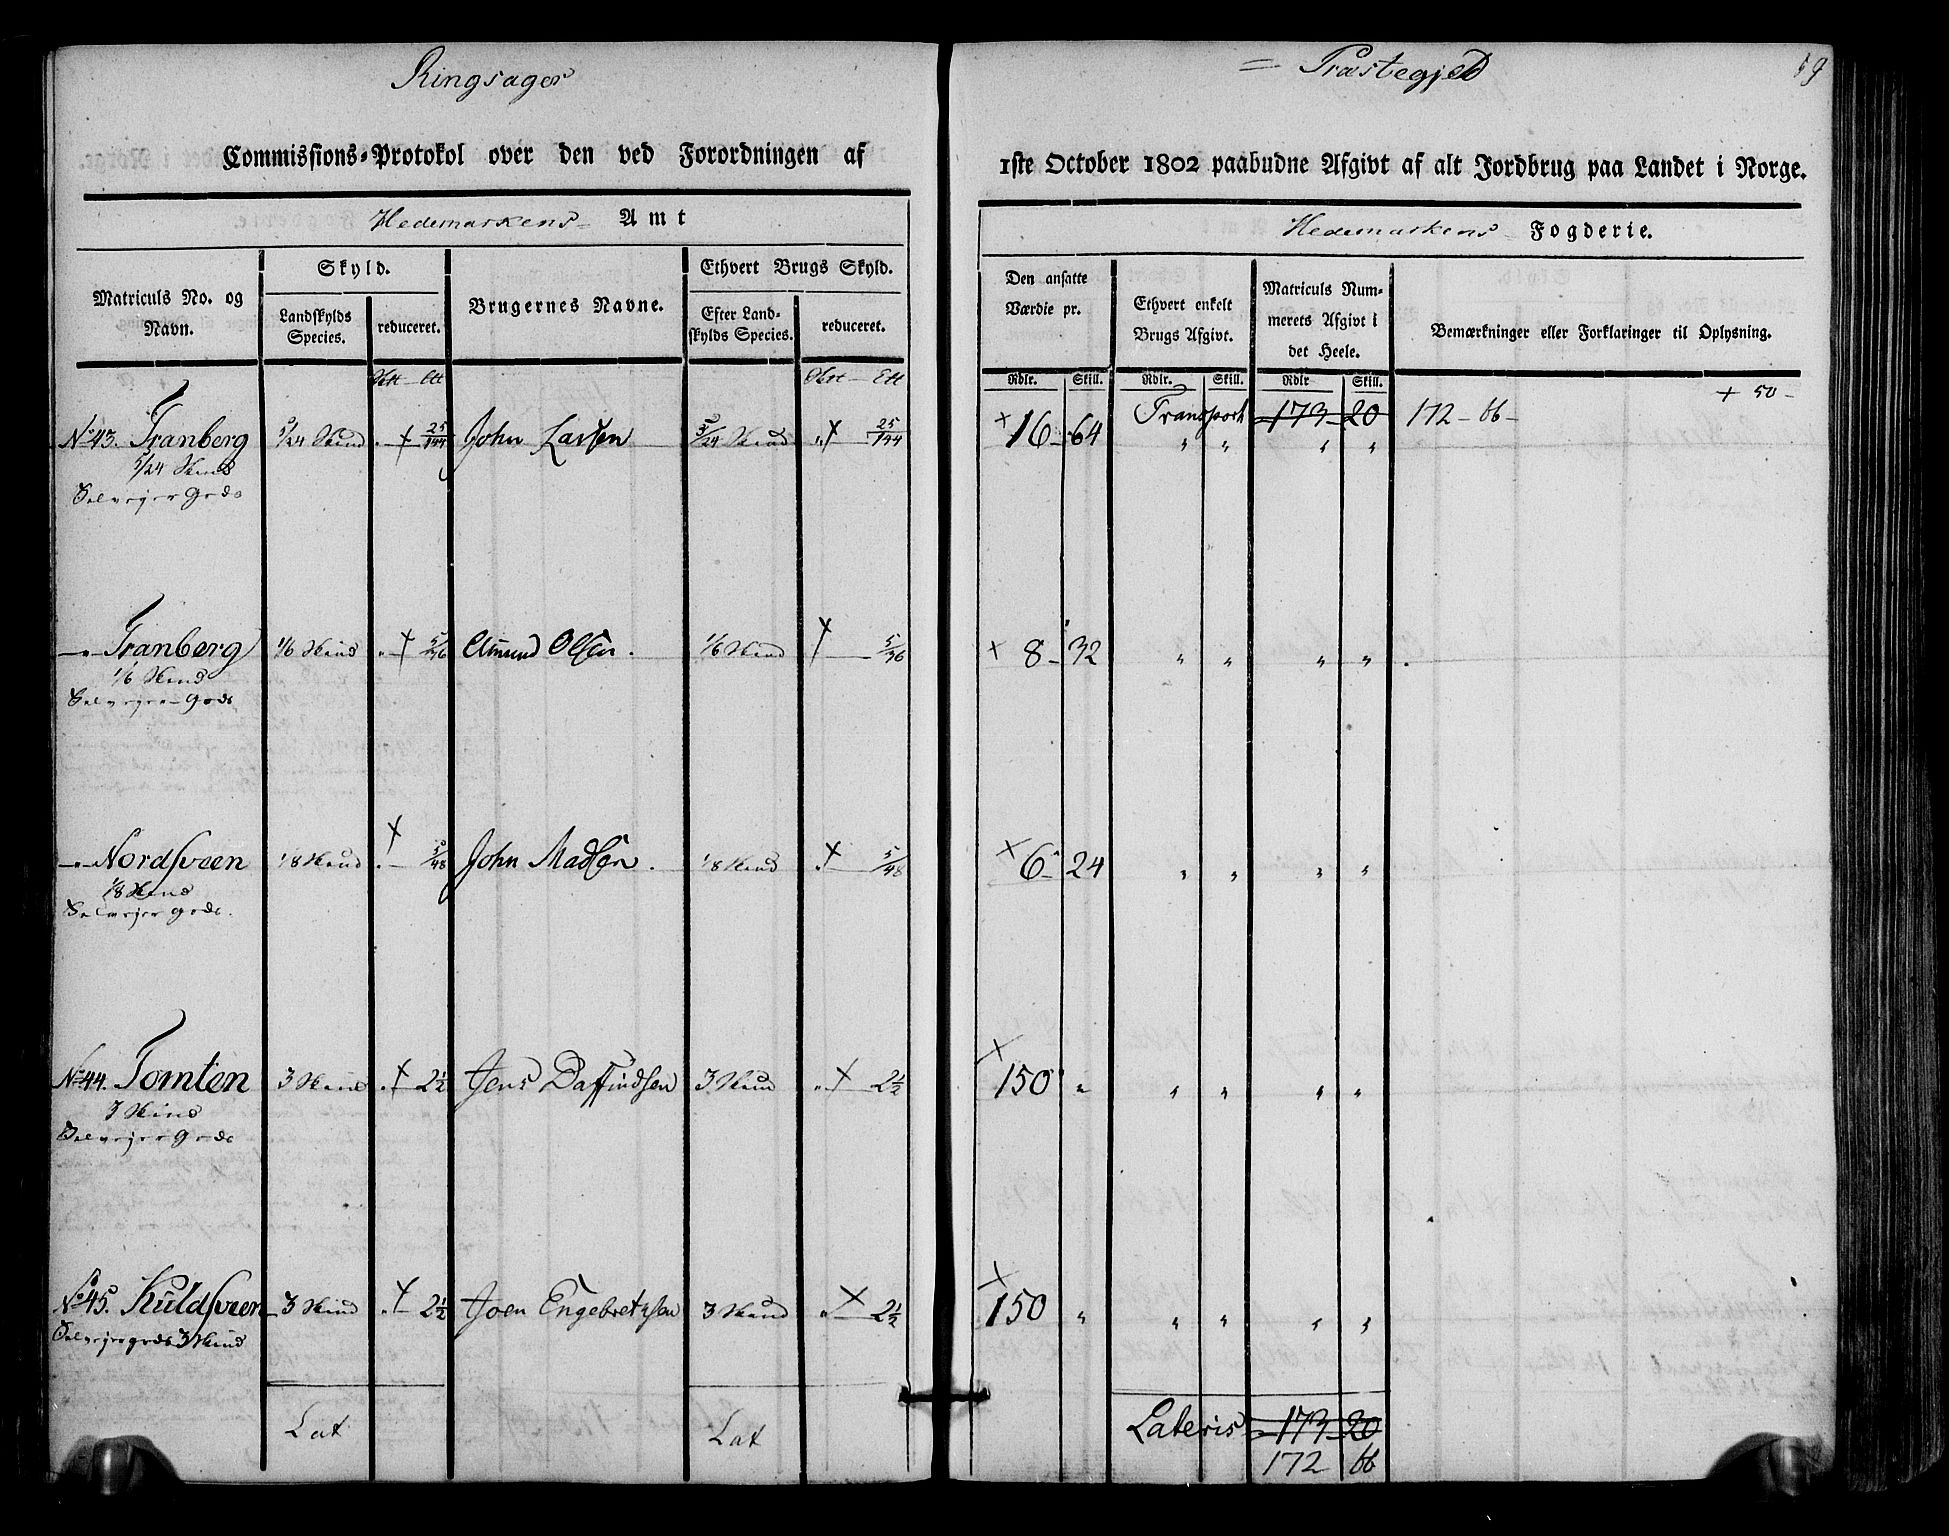 Ringsager = Præstegjeld
Commissions-Protokol over den ved Forordningen af 1ste October 1802 paabudne Afgivt af alt Jordbrug paa Landet i Norge.
Hedemarkens Amt
Hedemarkens Fogderie.
Matriculs No. og Navn.
Skyld.
Landskylds Species.
reduceret.
Brugernes Navne.
Ethvert Brugs Skyld.
Efter Landskylds Species.
reduceret.
Den ansatte Værdie pr.
Ethvert enkelt Brugs Afgivt.
Matriculs Nummerets Afgivt i det Heele.
Bemærkninger eller Forklaringer til Oplysning.
Rdlr. Skill. Rdlr. Skill. Rdlr Skill.
+ 50 -
Transport 173 20 172 - 66 -
No 43. Tranberg 5/24 Hud + 25/144 John Larsen 5/24 Hud + 25/144 + 16 - 64 " " " "
5/24 Hud
Selvejer Gods
- " - Tranberg 1/6 Hud + 5/36 Amund Olsen . 1/6 Hud + 5/36 + 8 - 32 " " " "
1/6 Hud
Selvejer Gods
- " - Nordsveen 1/8 Hud + 5/48 John Madsen . 1/8 Hud + 5/48 + 6 - 24 " " " "
1/8 Hud
Selvejer Gods.
No 44. Tomten 3 Hud + 2 1/2 Jens Daffindsen 3 Hud + 2 1/2 + 150 " " " " "
3 Hud
Selvejer Gods
No 45. Kuldsveen 3 Hud + 2 1/2 Joen Engebretsen 3 Hud + 2 1/2 + 150 " " " " "
Selvejergods 3 Hud
Lat Lat Lateris 173 - 20
172 66